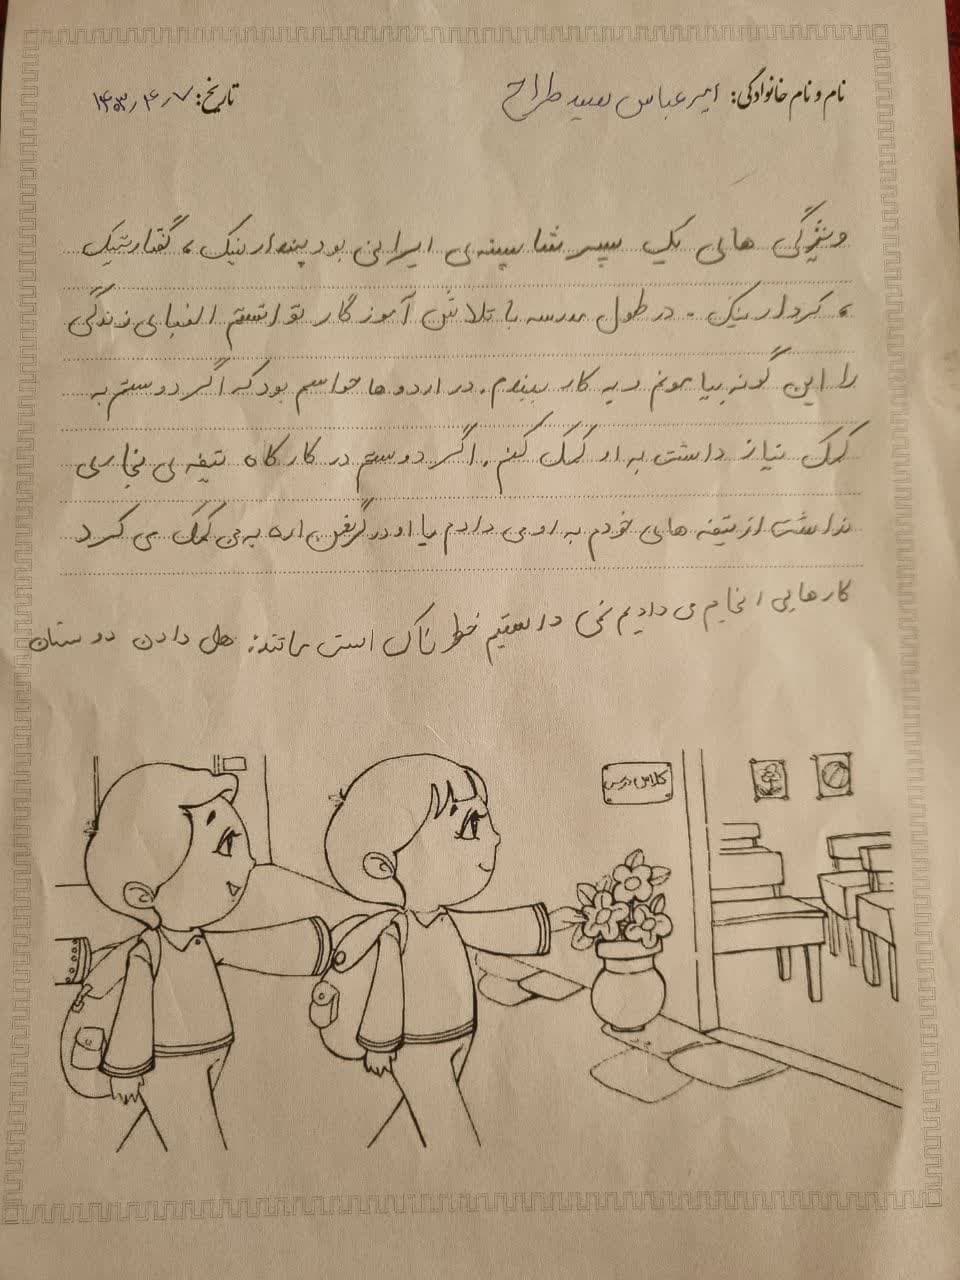 نام و نام خانوادگی: امیرعباس سعید طراح
تاریخ: ۱۴۰۳/۴/۷
ویژگی های یک پسر شایسته ی ایرانی بود پندار نیک، گفتار نیک
، کردار نیک. در طول مدرسه با تلاش آموزگار توانستم الفبای زندگی
را این گونه بیاموزم و به کار ببندم. در اردو ها حواسم بود که اگر دوستم به
کمک نیاز داشت به او کمک کنم. اگر دوستم در کارگاه تیغه ی نجاری
نداشت از تیغه های خودم به او می دادم یا او در گرفتن اره به من کمک می کرد
کارهایی انجام می دادیم نمی دانستیم خطرناک است مانند: هل دادن دوستان
کلاس درس